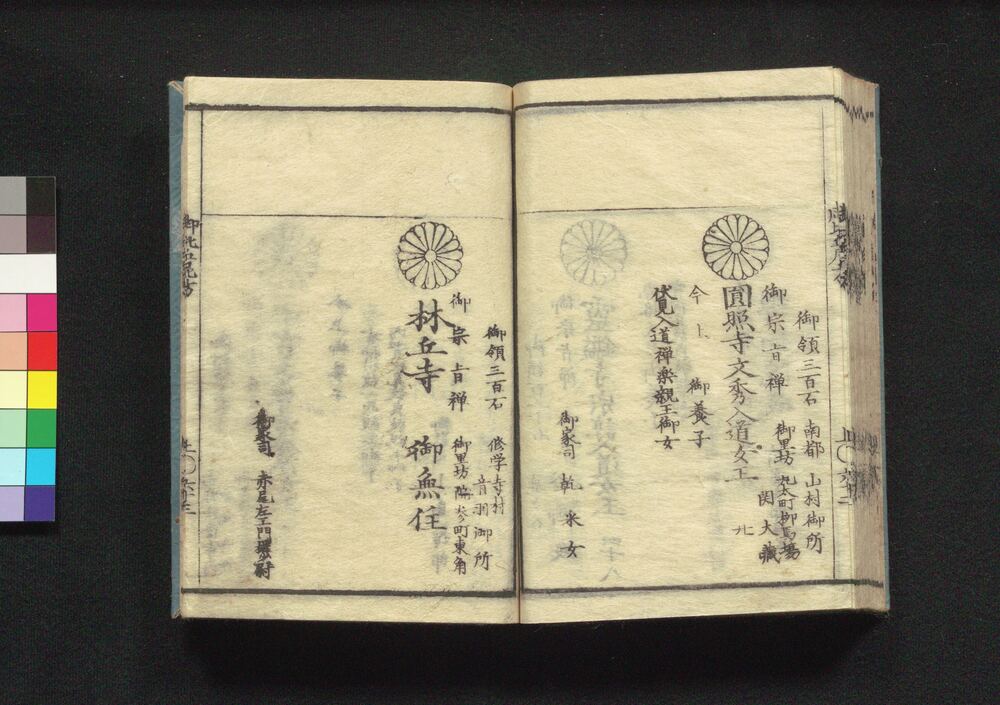 御領三百石 南都 山村御所
御宗旨禅 御里坊 丸太町柳馬場
関大蔵
圓照寺文秀入道女王
今上 御養子
伏見入道禅楽親王御女
御家司 乾 采女
御領三百石 修学寺村
音羽御所
御宗旨禅 御里坊 町東角
林丘寺 御無住
御家司 赤尾左エ門
御比丘尼方